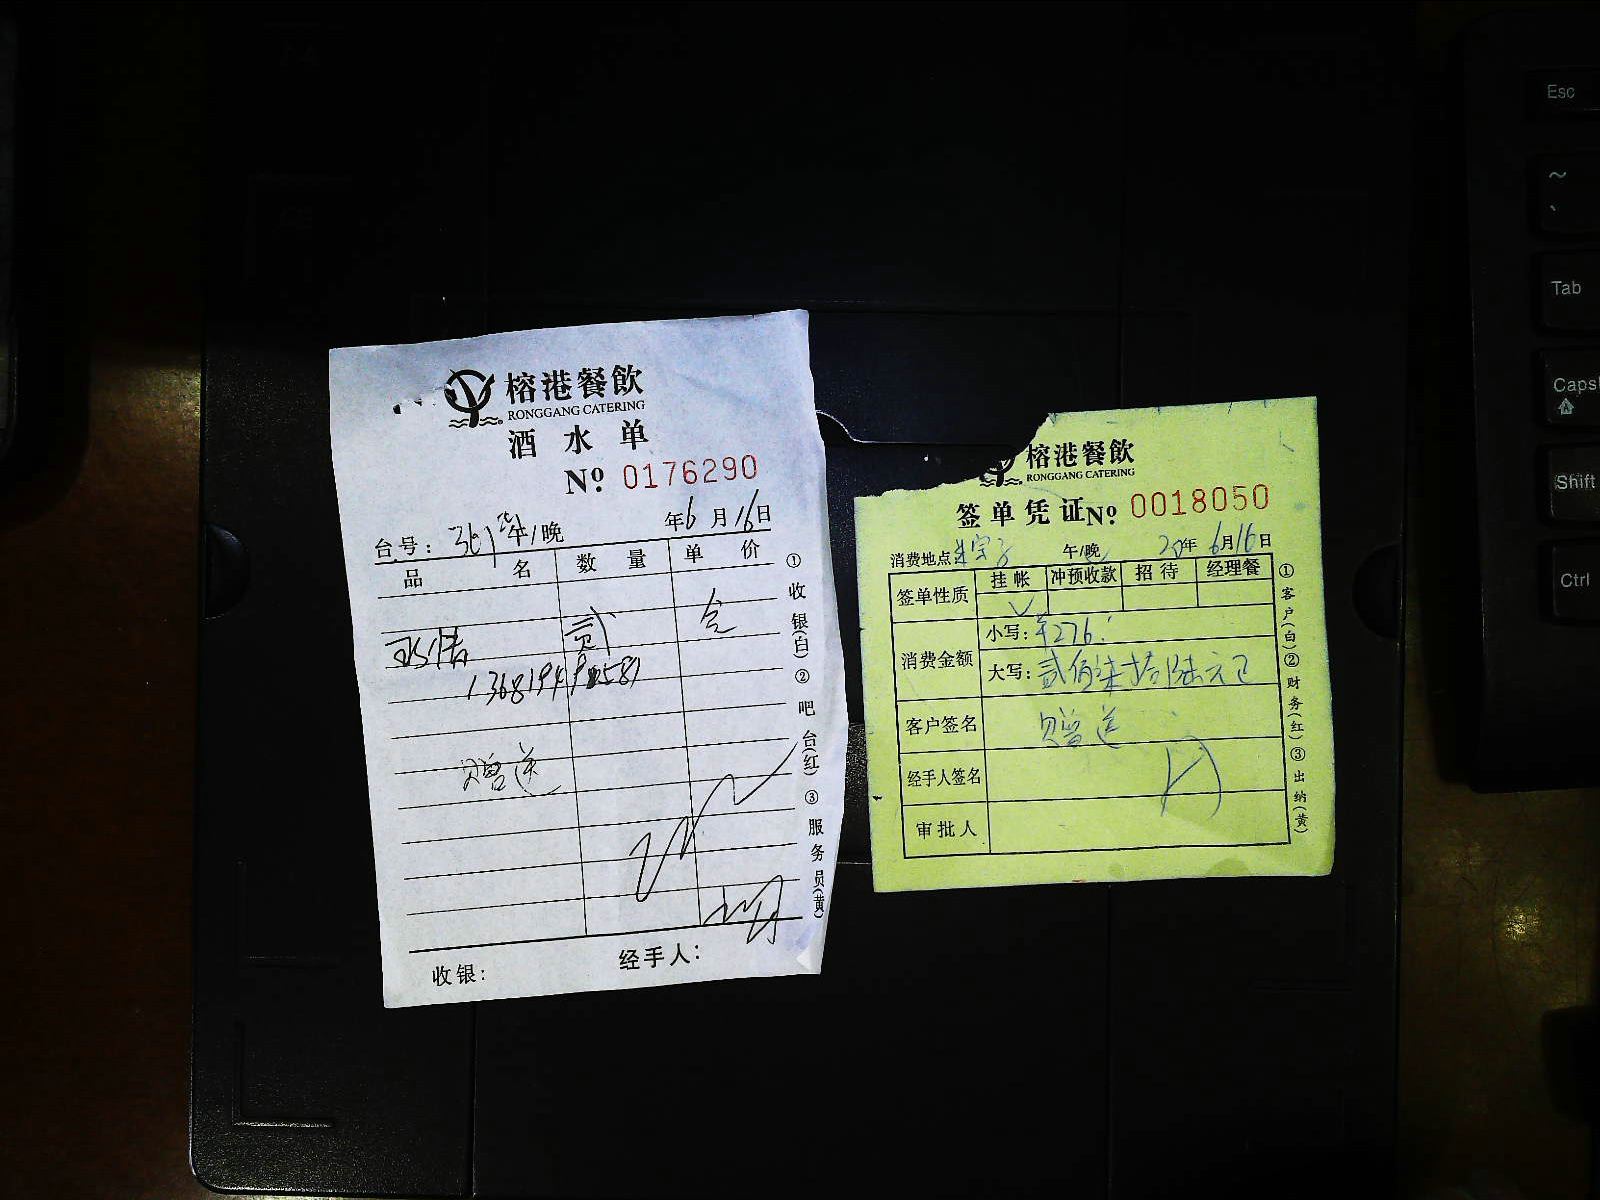 榕港餐飲
RONGGANG CATERING
酒水单
Nº 0176290
台号: 午/晚 年6月16日
品名 数量 单价
贰 仓
赠送
收银: 经手人:
①收银(白)②吧台(红)③服务员(黄)
榕港餐飲
RONGGANG CATERING
签单凭证Nº 0018050
消费地点: 午/晚 20年6月16日
签单性质 挂帐 冲预收款 招待 经理餐
√
消费金额 小写: ¥276.
大写: 贰佰柒拾陆元正
客户签名 赠送
经手人签名
审批人
①客户(白)②财务(红)③出纳(黄)
Esc
~
`
Tab
Caps
Shift
Ctrl